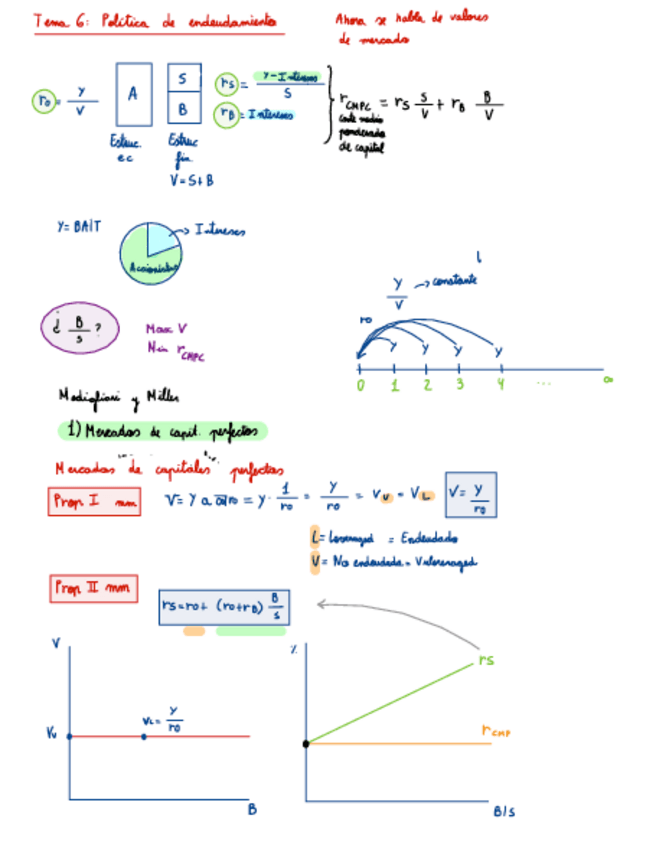 Tema 6: Política de endeudamiento
Ahora se habla de valores
de mercado
r0 = Y/V
A
S
B
rS = Y-Intereses/S
rB = Intereses
rCMPC = rS S/V + rB B/V
coste medio
ponderado
de capital
Estruc.
ec
Estruc
fin
V=S+B
Y= BAIT
Intereses
Accionistas
¿ B/S ?
Max V
Min rCMPC
Y/V → constante
r0
Y Y Y Y
0 1 2 3 4 ... ∞
Modigliani y Miller
1) Mercados de capit. perfectos
Mercados de capitales perfectos
Prop I mm
V= Y a ∞ r0 = Y · 1/r0 = Y/r0 = VU = VL
V= Y/r0
L= Leveraged = Endeudado
V= No endeudada = Vnleveraged
Prop II mm
rS=r0+ (r0+rB) B/S
V
Vu
VL= Y/r0
B
%
rS
rCMP
B/S